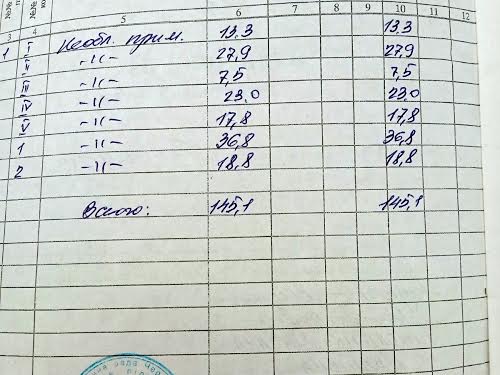 3 4 5 6 7 8 9 10 11 12
1 I Необл. прим. 13.3 13.3
II -11- 27,9 27,9
III -11- 7,5 7,5
IV -11- 23.0 23.0
V -11- 17,8 17,8
1 -11- 36,8 36,8
2 -11- 18,8 18,8
Всього: 145,1 145,1
рада